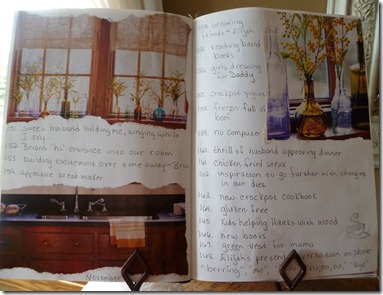 151. sweet husband holding me, singing while
I cry
152. Brian's "ho" entrance into our room
153. building excitement over time away w/ Brian
154. appliance bread maker
November
becoming
friends w/ Elijah
155. reading board
books
156. girls dressing
for Daddy
157. crockpot yogurt
158. freezer full of
beef
159. no computer
160. thrill of husband approving dinner
161. chicken fried steak
162. inspiration to go further with changes
in our diet
163. new crockpot cookbook
164. gluten-free
165. kids helping Hanks with wood
166. new boots
167. green vest for mama
168. Elijah's pretend conversation on phone
"brrring", "mo", no, no, no, "bye"